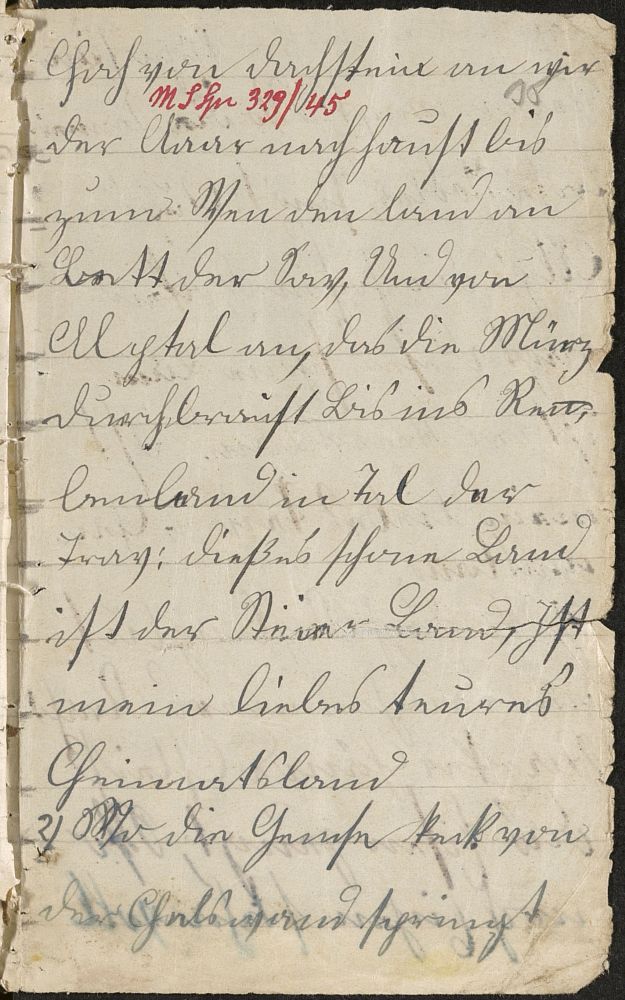 Hoch von dachstein an wir
MS Gn 329/45
der Aaar noch haust bis
zum Wenden land am
Bett der Sav, Und von
Alptal an, das die Mürz
durchbraust Bis ins Reu,
benland in Tal der
Trav: dießes schöne Land
ist der Steirer Land, Ist
mein liebes teures
Heimatsland
2) Wo die Gemse keck von
der Halswand springt